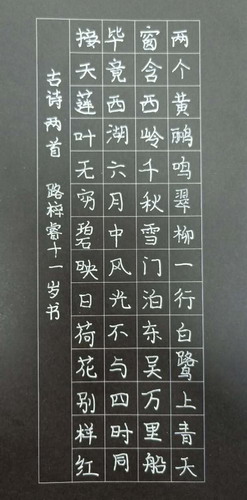 两个黄鹂鸣翠柳一行白鹭上青天
窗含西岭千秋雪门泊东吴万里船
毕竟西湖六月中风光不与四时同
接天莲叶无穷碧映日荷花别样红
古诗两首 路梓睿十一岁书